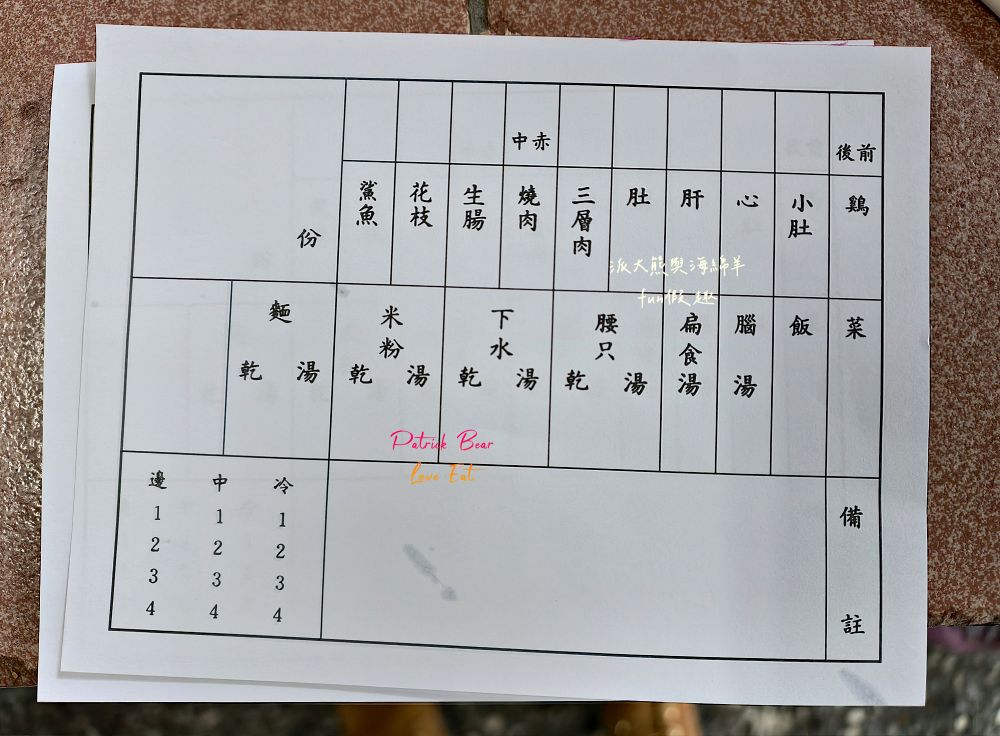 後前
鷄
小肚
心
肝
肚
三層肉
中赤
燒肉
生腸
花枝
鯊魚
份
菜
飯
腦湯
扁食湯
腰只
乾 湯
下水
乾 湯
米粉
乾 湯
麵
乾 湯
備註
邊 中 冷
1 1 1
2 2 2
3 3 3
4 4 4
派大熊與海綿羊
fun假趣
Patrick Bear
Love Eat